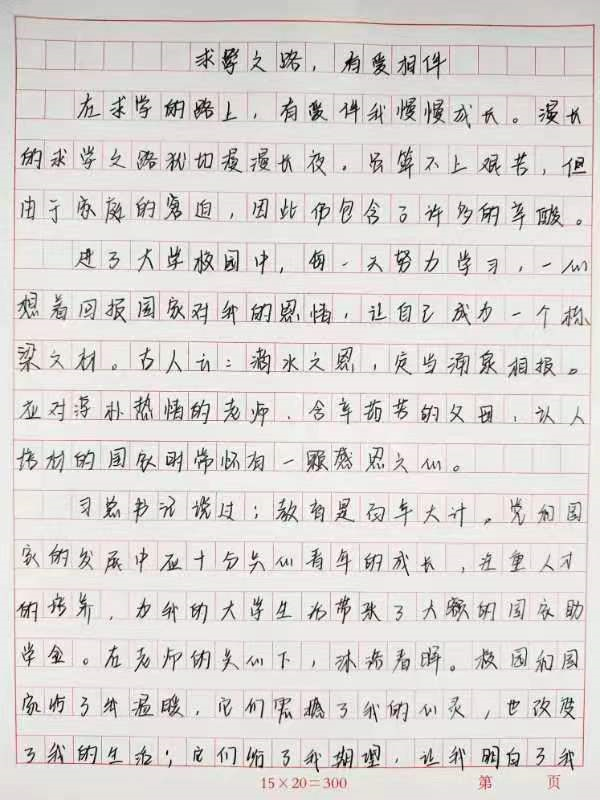 求学之路，有爱相伴
在求学的路上，有爱伴我慢慢成长。漫长
的求学之路犹如漫漫长夜，虽算不上艰苦，但
由于家庭的窘迫，因此仍包含了许多的辛酸。
进了大学校园中，每一天努力学习，一心
想着回报国家对我的恩情，让自己成为一个栋
梁之材。古人云：滴水之恩，定当涌泉相报。
应对淳朴热情的老师，含辛茹苦的父母，以人
为材的国家时常怀有一颗感恩之心。
习总书记说过；教育是百年大计。党和国
家的发展中应十分关心青年的成长，注重人才
的培养，为我的大学生活带来了大额的国家助
学金。在老师的关心下，沐浴春晖。校园和国
家给了我温暖，它们震撼了我的心灵，也改变
了我的生活；它们给了我期望，让我明白了我
15×20=300 第 页